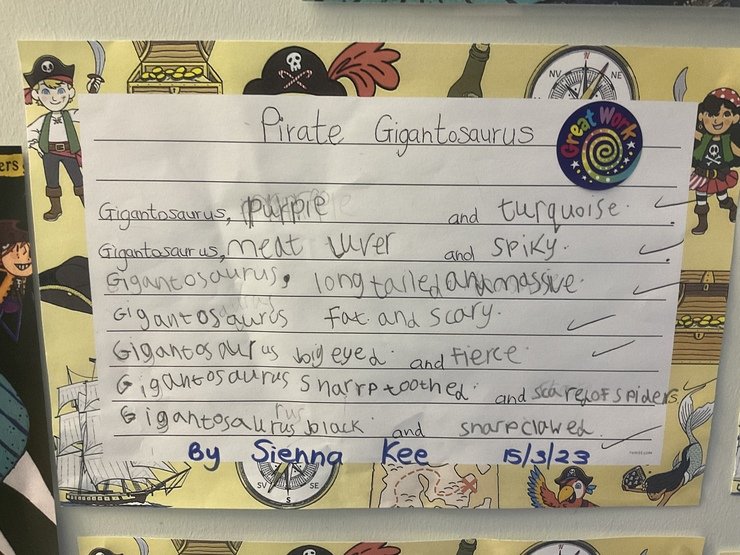 NV
NE
Great Work
Pirate Gigantosaurus
ers
Gigantosaurus, purple and turquoise.
Gigantosaurus, meat luver and spiky.
Gigantosaurus, long tailed and massive.
Gigantosaurus fat and scary.
Gigantosaurus big eyed. and fierce
Gigantosaurus Sharp toothed. and scared of spiders
Gigantosaurus black. and sharp clawed.
By Sienna Kee 15/3/23
SV
S
SE